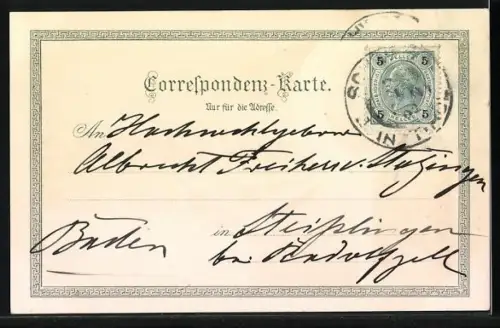 Correspondenz-Karte.
Nur für die Adresse.
5 5
5 5
An Hochwohlgeboren
Albrecht Freiherr v. Stotzingen
in Steißlingen
Baden
bei Radolfzell